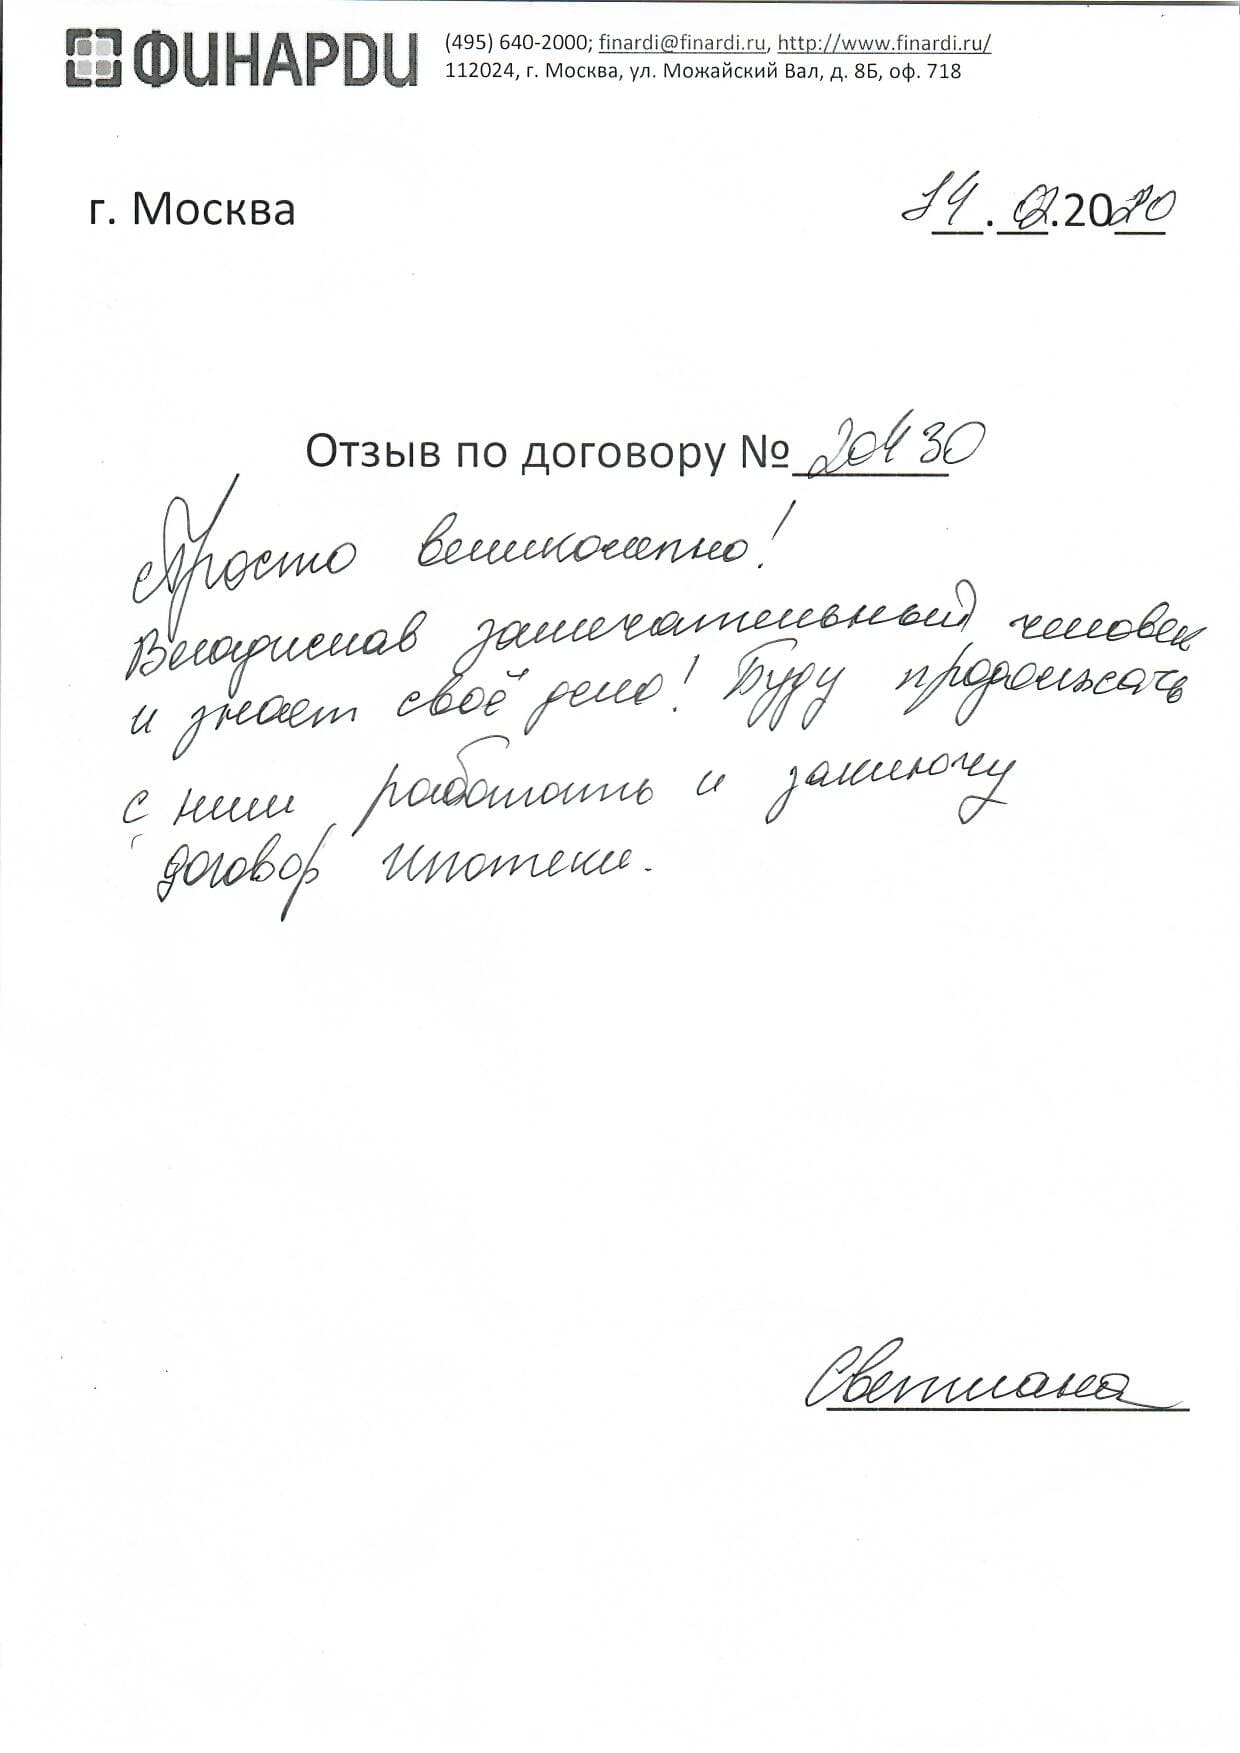 ФИНАРДИ
(495) 640-2000; finardi@finardi.ru, http://www.finardi.ru/
112024, г. Москва, ул. Можайский Вал, д. 8Б, оф. 718
г. Москва 14.02.2020
Отзыв по договору № 20430
Просто великолепно!
Владислав замечательный человек
и знает своё дело! Буду продолжать
с ним работать и заключу
договор ипотеки.
Светлана